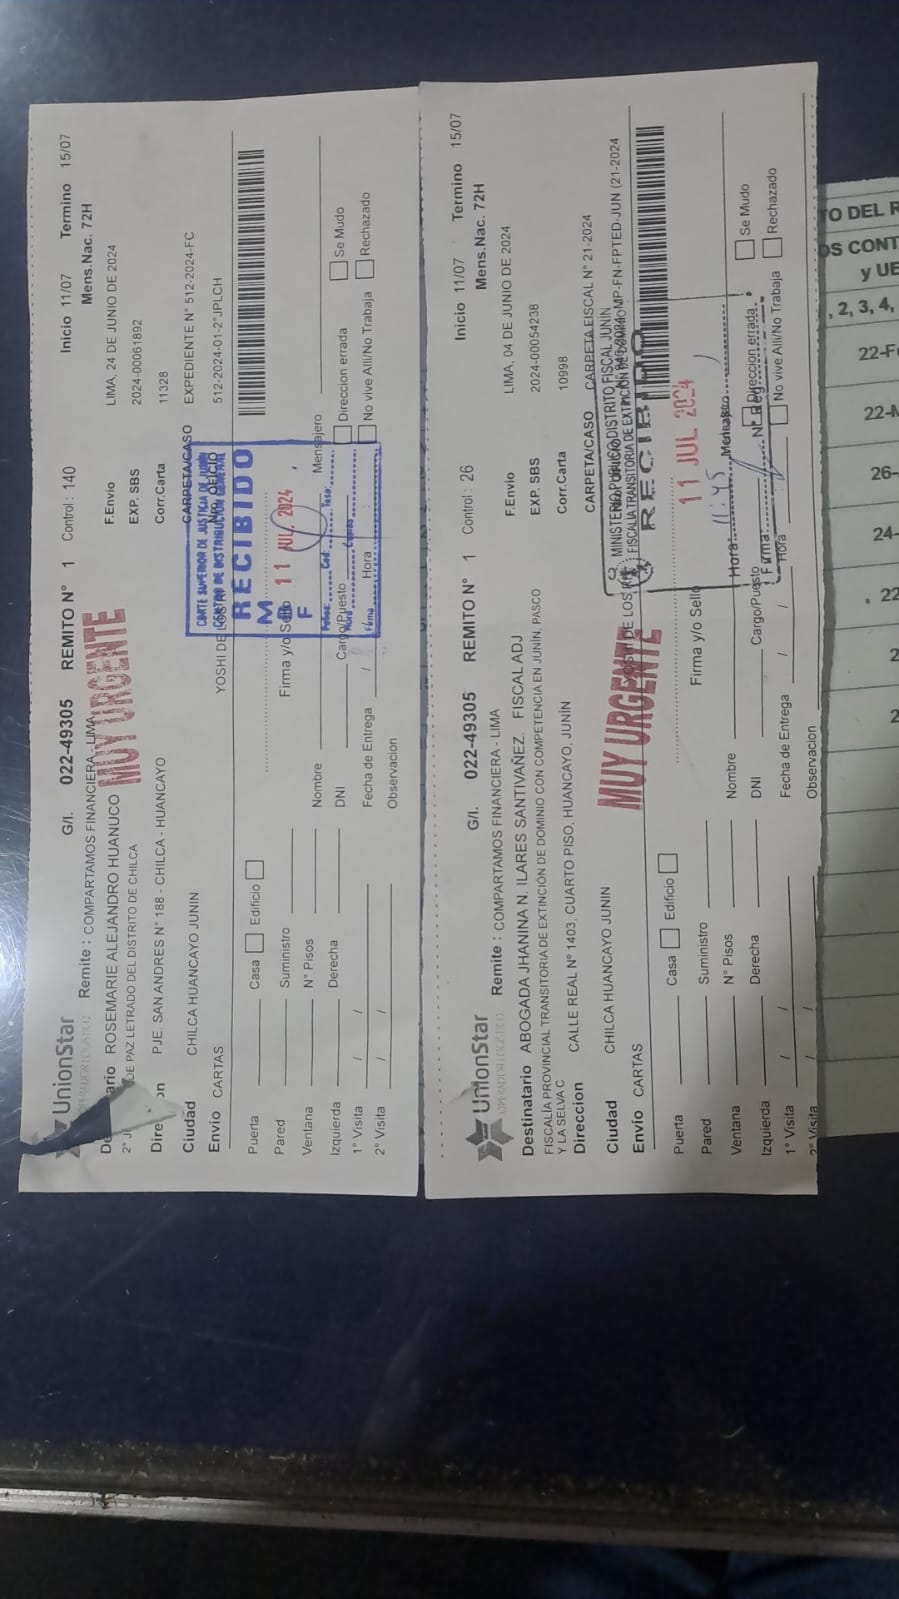 UnionStar
G/I. 022-49305 REMITO N° 1 Control : 140 Inicio 11/07 Termino 15/07
Remite : COMPARTAMOS FINANCIERA - LIMA
Mens.Nac. 72H
MUY URGENTE
ario ROSEMARIE ALEJANDRO HUANUCO
F.Envio LIMA, 24 DE JUNIO DE 2024
DE PAZ LETRADO DEL DISTRITO DE CHILCA
EXP. SBS 2024-00061892
PJE. SAN ANDRES N° 188 - CHILCA - HUANCAYO
Corr.Carta 11328
Ciudad CHILCA HUANCAYO JUNIN
CARPETA/CASO EXPEDIENTE N° 512-2024-FC
Envio CARTAS
YOSHI DE LOS
512-2024-01-2°JPLCH
CORTE SUPERIOR DE JUSTICIA DE JUNÍN
CENTRO DE DISTRIBUCIÓN GENERAL
RECIBIDO
11 JUL 2024
M
F
Puerta Casa Edificio
Firma y/o Sello
Pared Suministro
Nombre Mensajero
Ventana N° Pisos
DNI Cargo/Puesto Direccion errada Se Mudo
Izquierda Derecha
Fecha de Entrega / Hora : No vive Alli/No Trabaja Rechazado
1° Visita / /
Observacion
2° Visita / /
UnionStar
OPERADOR LOGISTICO
G/I. 022-49305 REMITO N° 1 Control : 26 Inicio 11/07 Termino 15/07
Remite : COMPARTAMOS FINANCIERA - LIMA
Mens.Nac. 72H
Destinatario ABOGADA JHANINA N. ILARES SANTIVAÑEZ. FISCAL ADJ
F.Envio LIMA, 04 DE JUNIO DE 2024
FISCALÍA PROVINCIAL TRANSITORIA DE EXTINCIÓN DE DOMINIO CON COMPETENCIA EN JUNÍN, PASCO
Y LA SELVA C
EXP. SBS 2024-00054238
Direccion CALLE REAL N° 1403, CUARTO PISO, HUANCAYO, JUNÍN
Corr.Carta 10998
Ciudad CHILCA HUANCAYO JUNIN
CARPETA/CASO CARPETA FISCAL N° 21-2024
MUY URGENTE
Envio CARTAS
MP-FN-FPTED-JUN (21-2024
MINISTERIO PÚBLICO DISTRITO FISCAL JUNÍN
FISCALÍA TRANSITORIA DE EXTINCIÓN DE DOMINIO
RECIBIDO
11 JUL 2024
Hora: 11:45
Firma: N° Reg.
Puerta Casa Edificio
Firma y/o Sello
Pared Suministro
Nombre Mensajero
Ventana N° Pisos
DNI Cargo/Puesto Direccion errada Se Mudo
Izquierda Derecha
Fecha de Entrega / / Hora No vive Alli/No Trabaja Rechazado
1° Visita / /
Observacion
2° Visita / /
TO DEL R
OS CONT
y UE
, 2, 3, 4,
22-F
22-M
26-
24-
22
2
2